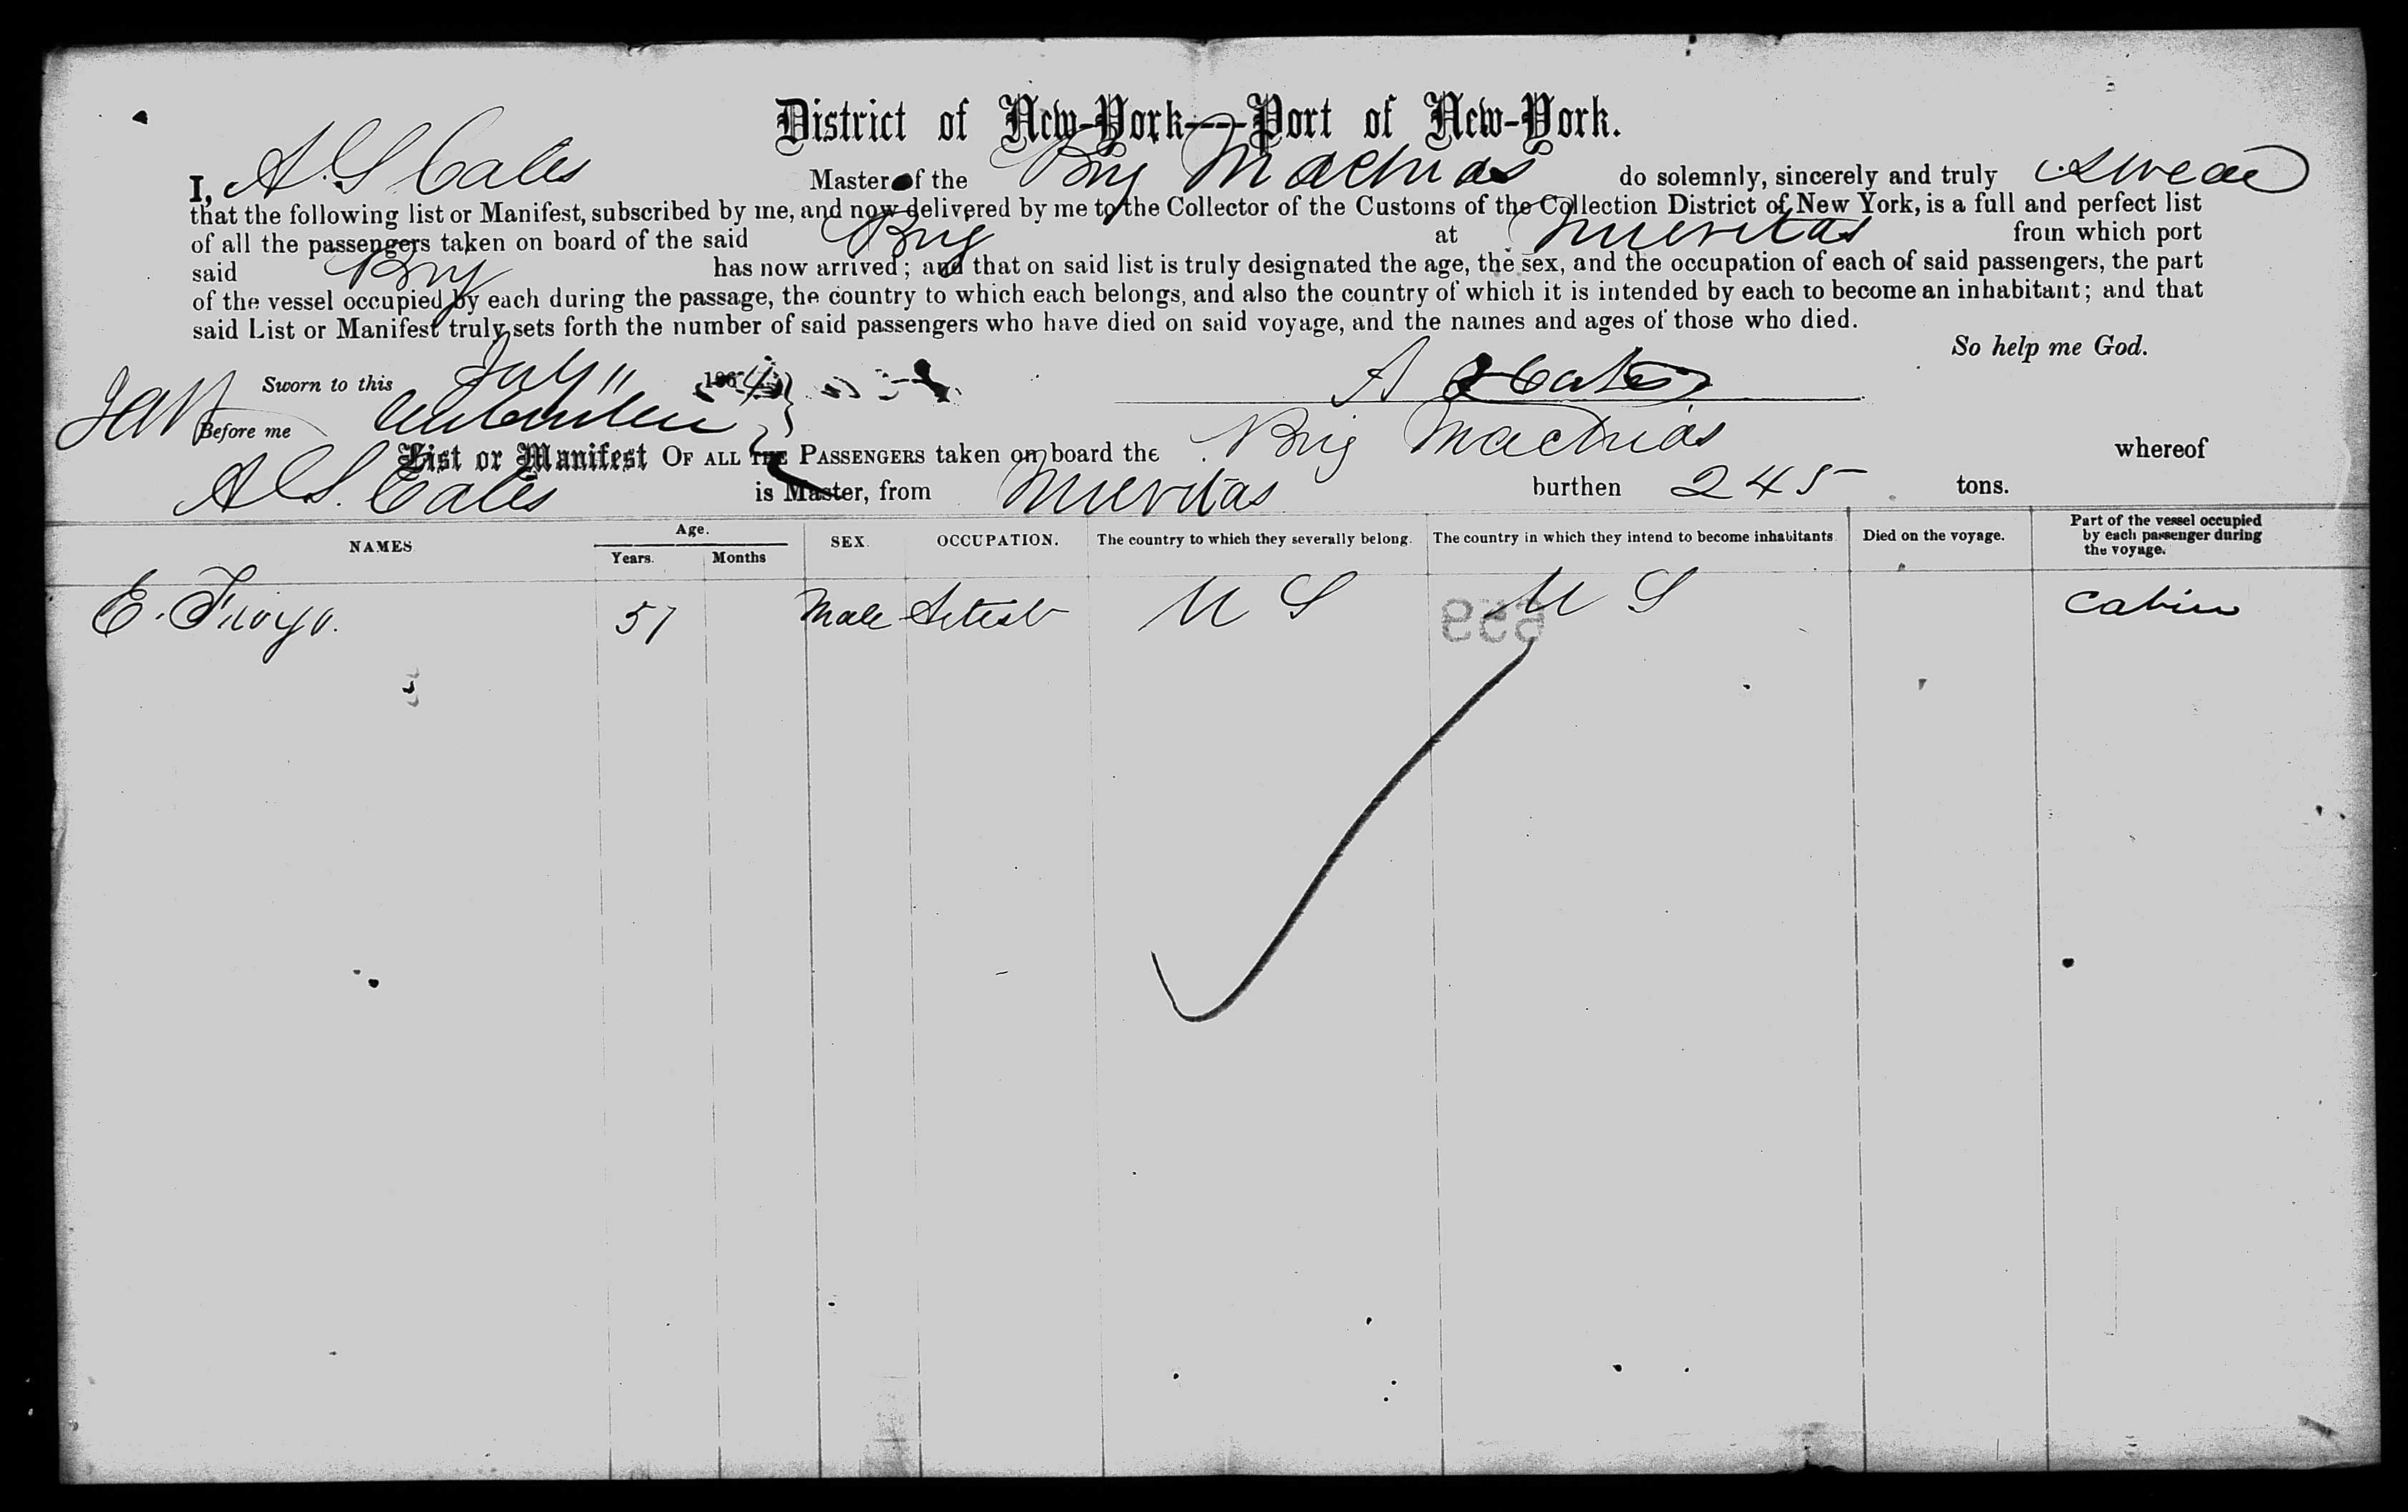 District of New-York---Port of New-York.
I, A. S Cates Master of the Brig Machias do solemnly, sincerely and truly swear
that the following list or Manifest, subscribed by me, and now delivered by me to the Collector of the Customs of the Collection District of New York, is a full and perfect list
of all the passengers taken on board of the said Brig at Nuevitas from which port
said Brig has now arrived; and that on said list is truly designated the age, the sex, and the occupation of each of said passengers, the part
of the vessel occupied by each during the passage, the country to which each belongs, and also the country of which it is intended by each to become an inhabitant; and that
said List or Manifest truly sets forth the number of said passengers who have died on said voyage, and the names and ages of those who died.
So help me God.
Sworn to this July 11 1864 A S Cates
Before me
List or Manifest OF ALL THE PASSENGERS taken on board the Brig Machias whereof
A S. Cates is Master, from Nuevitas burthen 245 tons.
NAMES Age. Years. Months SEX. OCCUPATION. The country to which they severally belong. The country in which they intend to become inhabitants. Died on the voyage. Part of the vessel occupied by each passenger during the voyage.
E. 57 Male U S U S Cabin